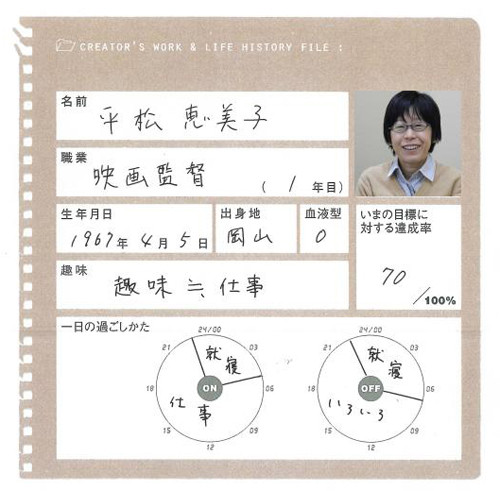 CREATOR'S WORK & LIFE HISTORY FILE :
名前
平松 恵美子
職業
映画監督 ( 1 年目)
生年月日
1967年 4月 5日
出身地
岡山
血液型
O
いまの目標に
対する達成率
70 /100%
趣味
趣味≒仕事
一日の過ごしかた
24/00
21
03
就寝
18
ON
06
仕事
15
09
12
24/00
21
03
就寝
18
OFF
06
いろいろ
15
09
12